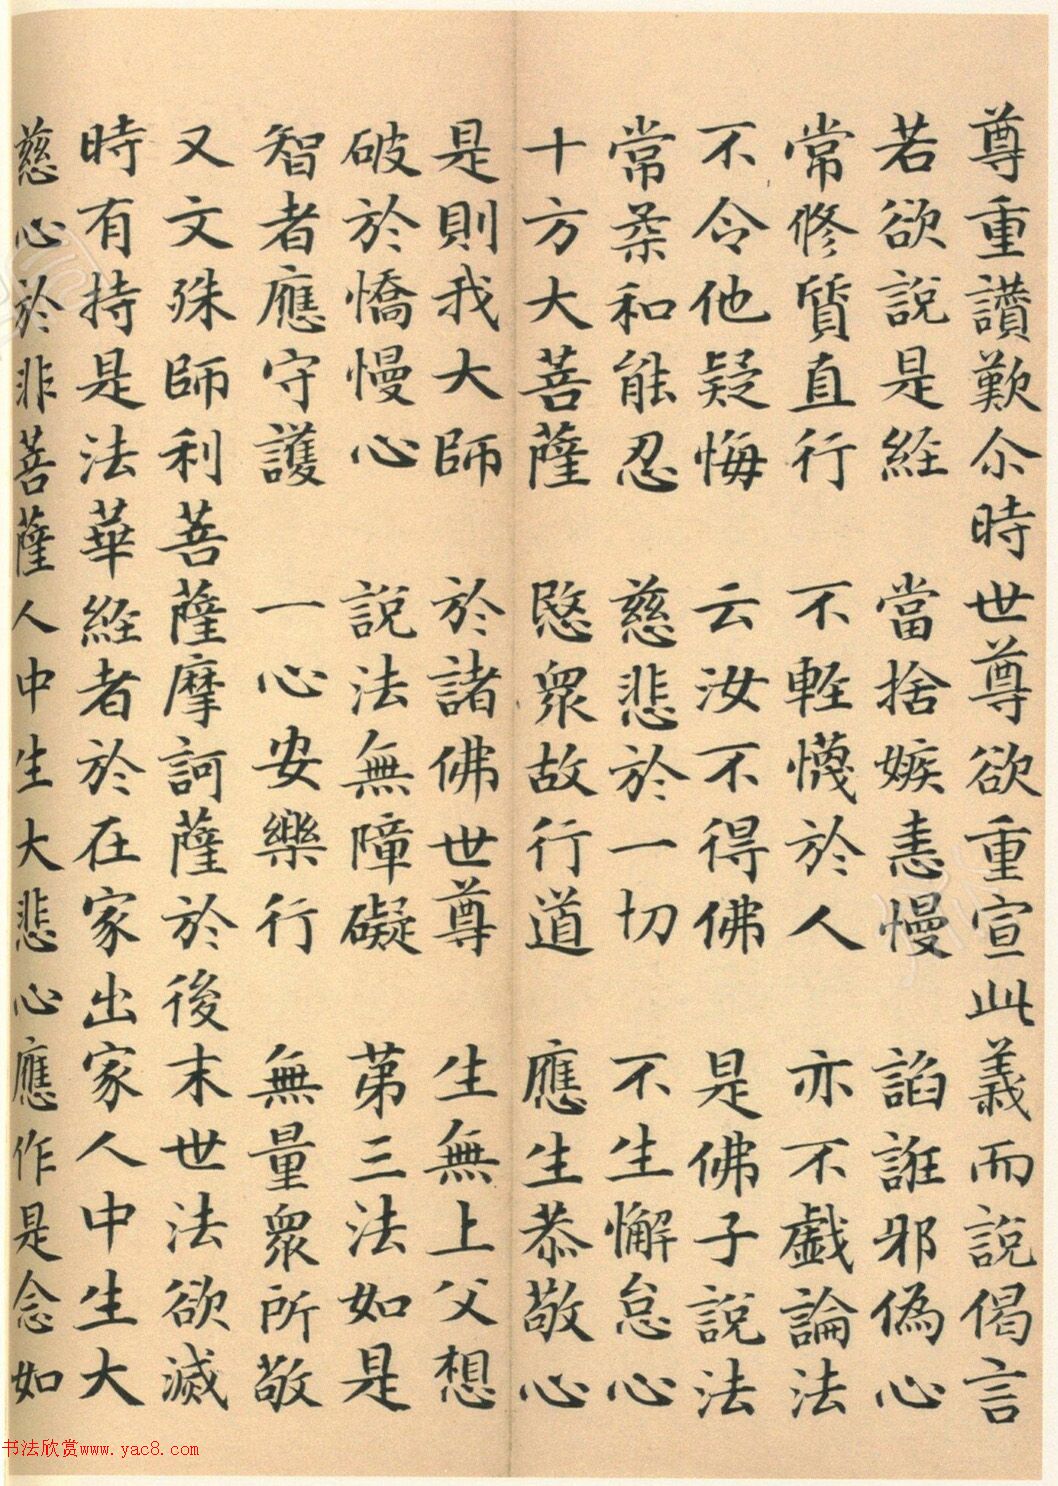 尊重讚歎尒時世尊欲重宣此義而說偈言
若欲說是経 當捨嫉恚慢 諂誑邪偽心
常修質直行 不軽懱於人 亦不戲論法
不令他疑悔 云汝不得佛 是佛子說法
常柔和能忍 慈悲於一切 不生懈怠心
十方大菩薩 愍眾故行道 應生恭敬心
是則我大師 於諸佛世尊 生無上父想
破於憍慢心 說法無障礙 苐三法如是
智者應守護 一心安樂行 無量眾所敬
又文殊師利菩薩摩訶薩於後末世法欲滅
時有持是法華経者於在家出家人中生大
慈心於非菩薩人中生大悲心應作是念如
书法欣赏www.yac8.com